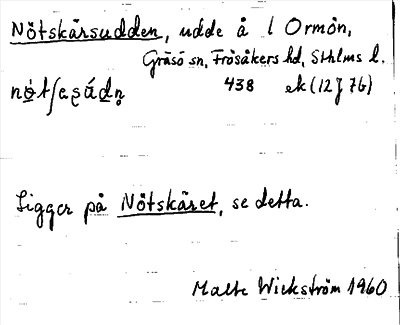 Nötskärsudden, udde å l Ormön,
Gräsö sn, Frösåkers hd, Sthlms l.
438 ek (12J7b)
Ligger på Nötskäret, se detta.
Malte Wickström 1960